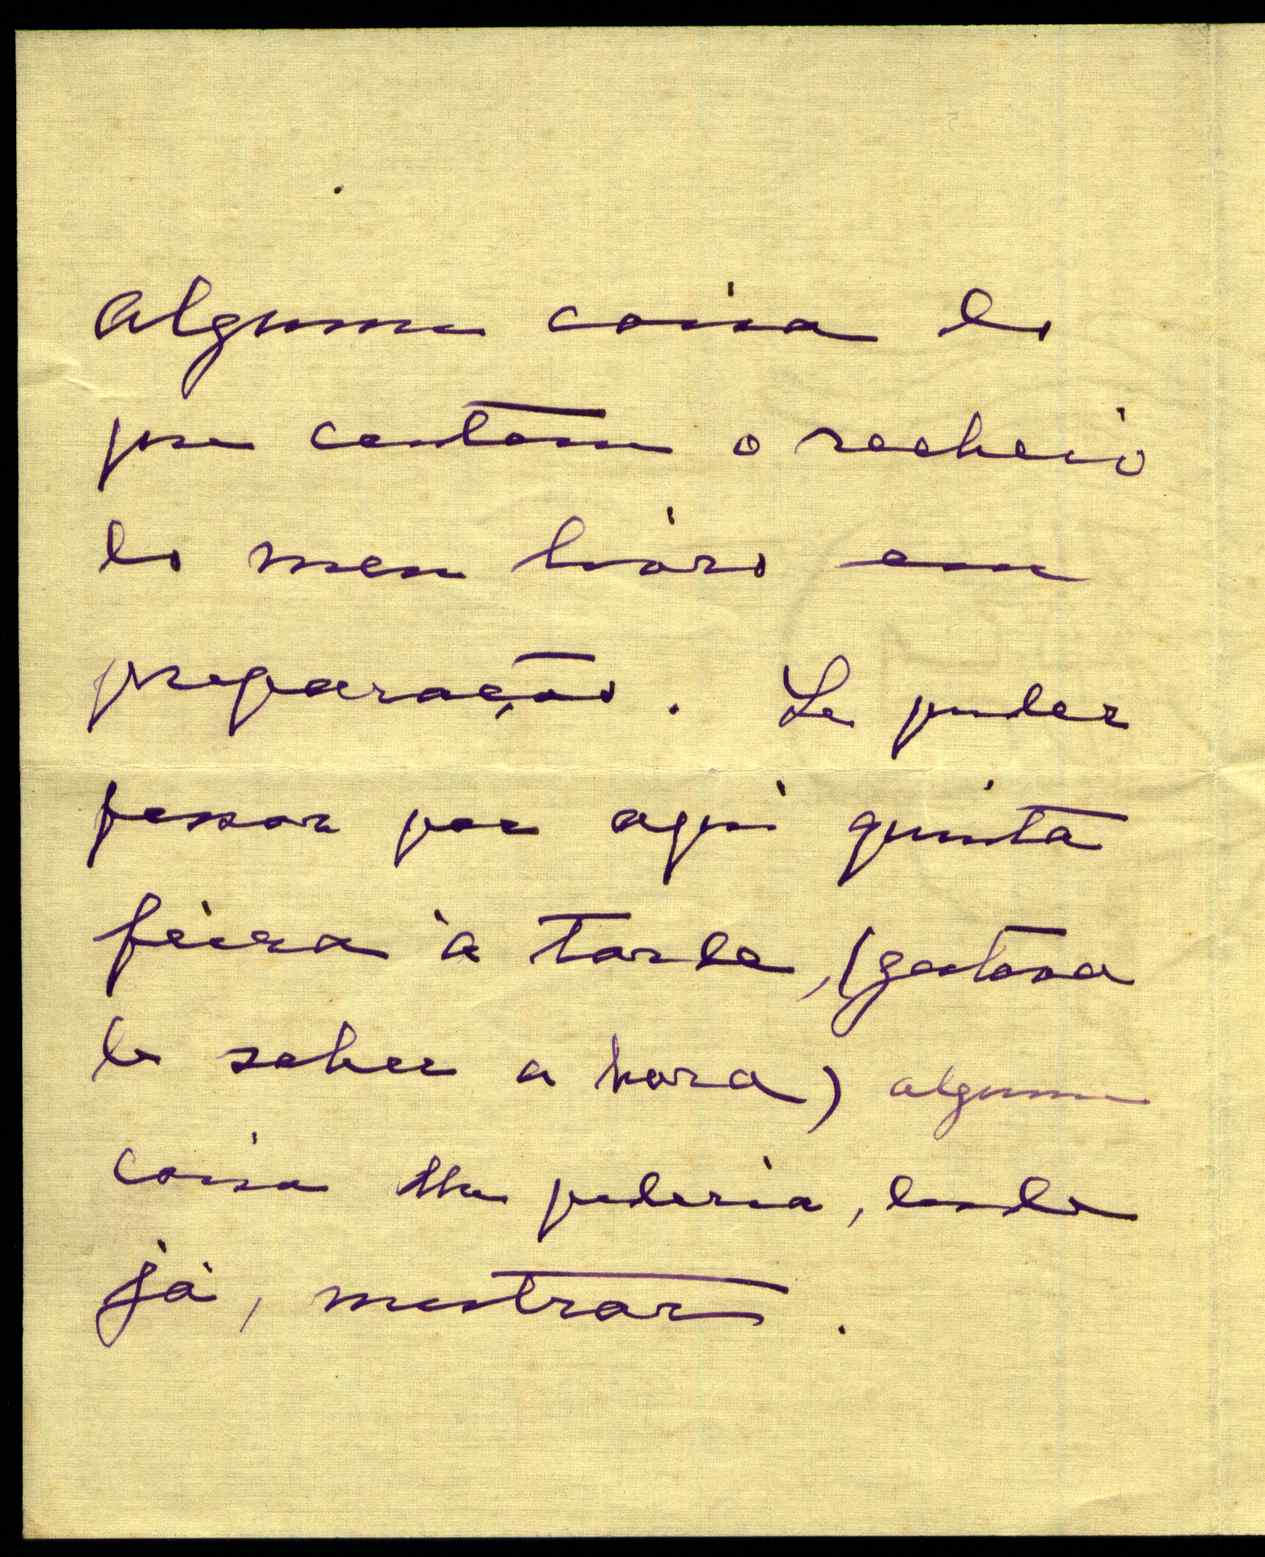 alguma coisa do
que contém o recheio
do meu livro em
preparação. Se puder
passar por aqui quinta
feira à tarde, (gostava
de saber a hora) alguma
coisa lhe poderia, desde
já, mostrar.